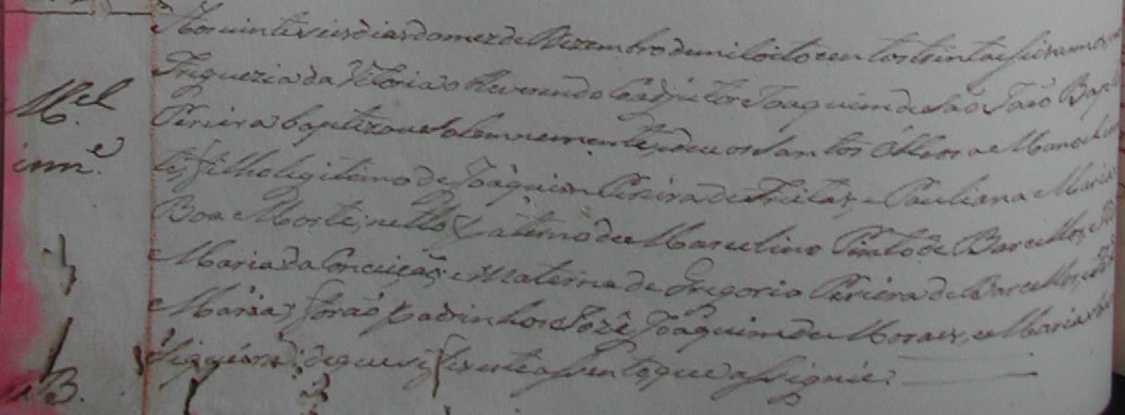 Aos vinte e seis dias do mez de Dezembro de mil oito centos trinta e seis annos, n
M.el Friguezia da Vitoria o Reverendo Coadjutor Joaquim de São João Bap
inn.e Periera baptizou solemnemente, e deu os Santos Óleos a Manoel inn
te, filho legitimo de Joaquim Pereira de Freitas, e Pauliana e Maria
Boa Morte; netto paterno de Marcelino Pinto de Barcellos, e
Maria da Conceição: e materna de Gregorio Periera de Barcellos, e
e Maria; forão padrinhos Jozé Joaquim de Moraes, e Maria
B. Siqueira: de que fiz este assento, que assignei.